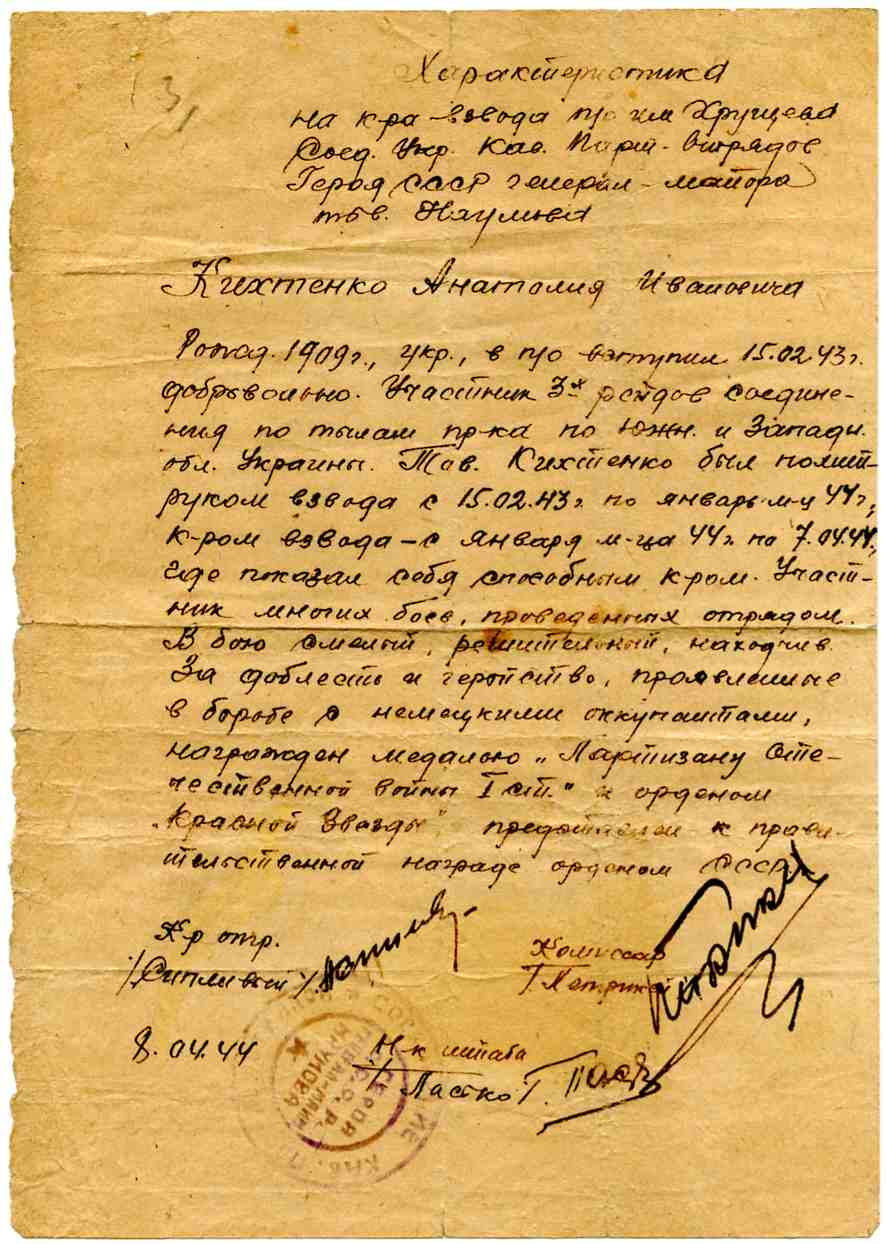 13,
Характеристика
на к-ра взвода п/о им Хрущева
Соед. Укр. Кав. Парт. Отрядов
Героя СССР генерал-майора
тов. Наумова
Кихтенко Анатолия Ивановича
1909 г., укр., в п/о вступил 15.02.43 г.
добровольно. Участник 3х рейдов соедине-
ния по тылам пр-ка по Южн. и Западн.
обл. Украины. Тов. Кихтенко был полит-
руком взвода с 15.02.43 г. по январь м-ц 44 г.,
к-ром взвода – с января м-ца 44 г. по 7.04.44,
где показал себя способным к-ром. Участ-
ник многих боев, проведенных отрядом.
В бою смелый, решительный, находчив.
За доблесть и геройство, проявленные
в борьбе с немецкими оккупантами,
награжден медалью „Партизану Оте-
чественной войны I ст." и орденом
„Красной Звезды", представлен к прави-
тельственной награде орденом СССР
К-р отр.
/Сипливый/
Комиссар
/Петрикей
8.04.44
Н-к штаба
/Ластко/
ГЕРОЯ
С.С.С.Р.
НАУМОВА